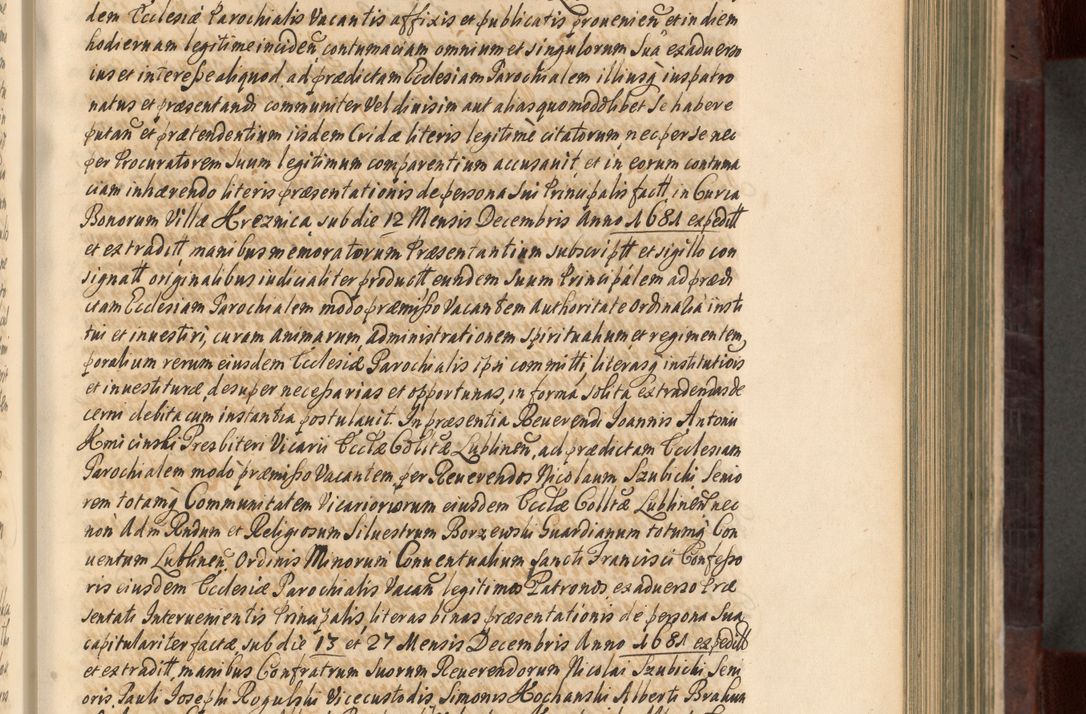 dem Ecclesiæ Parochialis Vacantis affixis et publicatis provenien̄ et in diem
hodiernam legitime inciden̄ contumaciam omnium et singulorum Sua ex adverso
ius et interesse aliquod ad prædictam Ecclesiam Parochialem illiusq iuspatro
natus et præsentandi communiter vel divisim aut alias quomodolibet se habere
putan̄ et prætendentium iisdem Cridæ literis legitimè citatorum nec per se nec
per Procuratorem Suum legitimum comparentium accusavit et in eorum contuma
ciam inhærendo literis præsentationis de persona Sui Principalis factt in Curia
Bonorum Villæ Hreznica sub die 12 Mensis Decembris Anno 1681 expeditt
et extraditt, manibus memoratorum Præsentantium subscriptt et sigillo con
signatt originalibus iudicialiter productt eundem Suum Principalem ad prædi
ctam Ecclesiam Parochialem modo præmisso Vacantem Authoritate Ordinaria insti
tui et investiri, curam animarum, administrationem spiritualium et regimen tem
poralium rerum eiusdem Ecclesiæ Parochialis ipsi committi, literasq institutiois
et investituræ desuper necessarias et opportunas, in forma solita extradendas de
cerni debita cum instantia postulavit. In præsentia Reverendi Joannis Antonii
Kmicinski Presbiteri Vicarii Ecclæ Collæ Lublinen̄, ad prædictam Ecclesiam
Parochialem modo præmisso Vacantem, per Reverendos Nicolaum Szubichi, Senio
rem totamq Communitatem Vicariorum eiusdem Ecclæ Collæ Lublinen̄ nec
non Adm Rndum et Religiosum Silvestrum Borzewski Guardianum totumq Con
ventum Lublinen̄ Ordinis Minorum Conventualium Sancti Francisci Confesso
ris eiusdem Ecclesiæ Parochialis Vacan̄ legitimos Patronos ex adverso Præ
sentati Intervenientis Principalis, literas binas præsentationis de persona Sua
capitulariter factæ, sub die 13 et 27 Mensis Decembris Anno 1681 expeditt
et extraditt, manibus Confratrum Suorum Reverendorum Nicolai Szubichi, Seni
oris Pauli Josephi Rogulski Vicecustodis, Simonis Hochanski Alberti